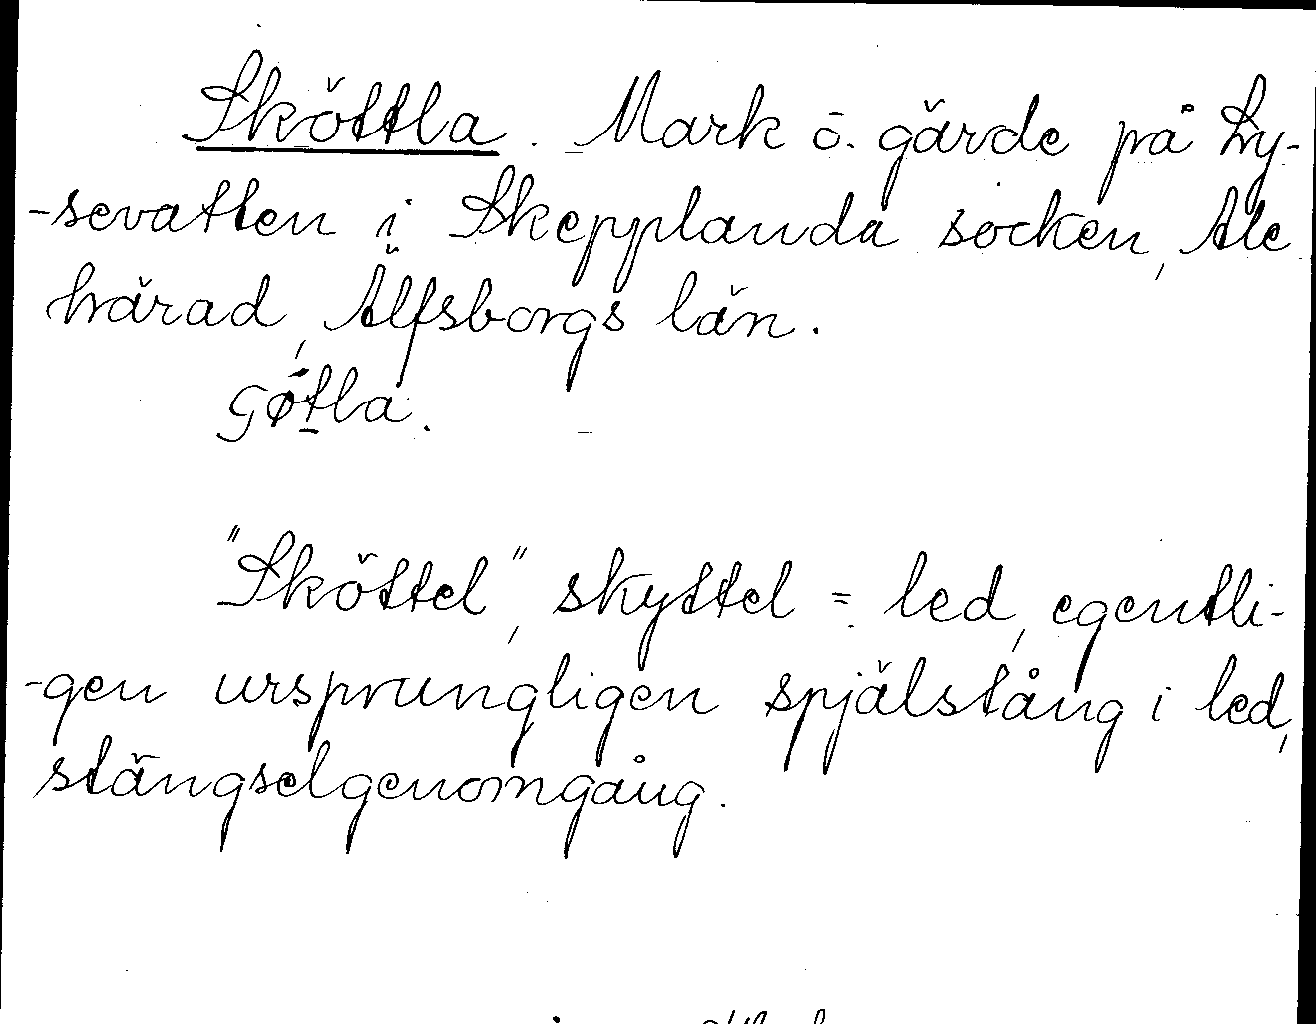 Sköttla. Mark o. gärde på Ly-
-sevatten i Skepplanda socken, Ale
härad, Älfsborgs län.
"Sköttel", skyttel = led, egentli-
-gen ursprungligen spjälstång i led,
stängselgenomgång.